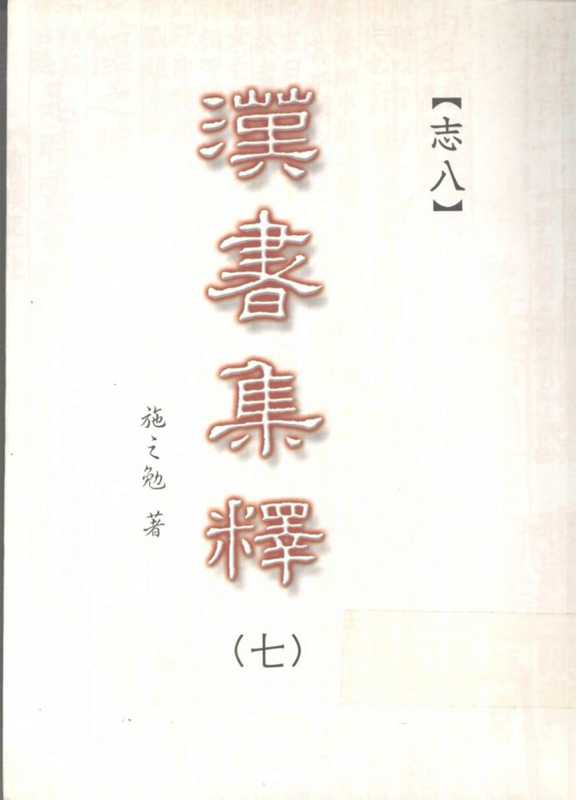 【志八】
漢書集釋
(七)
施之勉 著